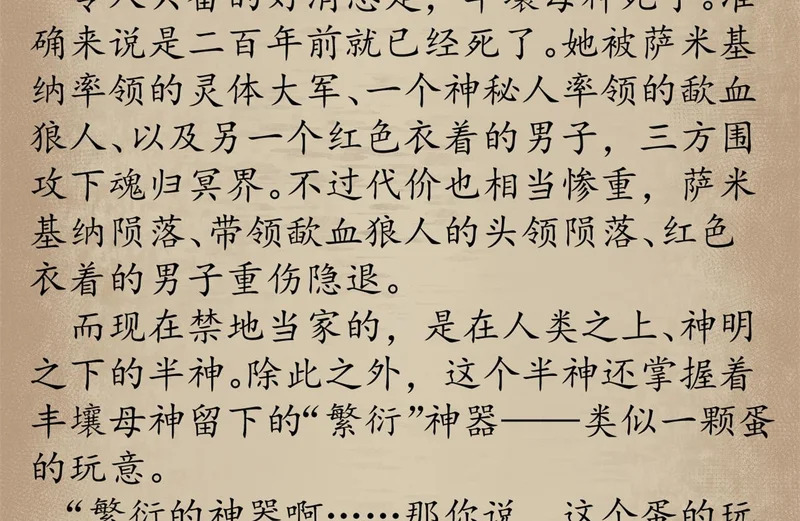 令人兴奋的好消息是，丰壤母神死了。准
确来说是二百年前就已经死了。她被萨米基
纳率领的灵体大军、一个神秘人率领的歃血
狼人、以及另一个红色衣着的男子，三方围
攻下魂归冥界。不过代价也相当惨重，萨米
基纳陨落、带领歃血狼人的头领陨落、红色
衣着的男子重伤隐退。
而现在禁地当家的，是在人类之上、神明
之下的半神。除此之外，这个半神还掌握着
丰壤母神留下的“繁衍”神器——类似一颗蛋
的玩意。
“繁衍的神器啊……那你说，这个蛋的玩